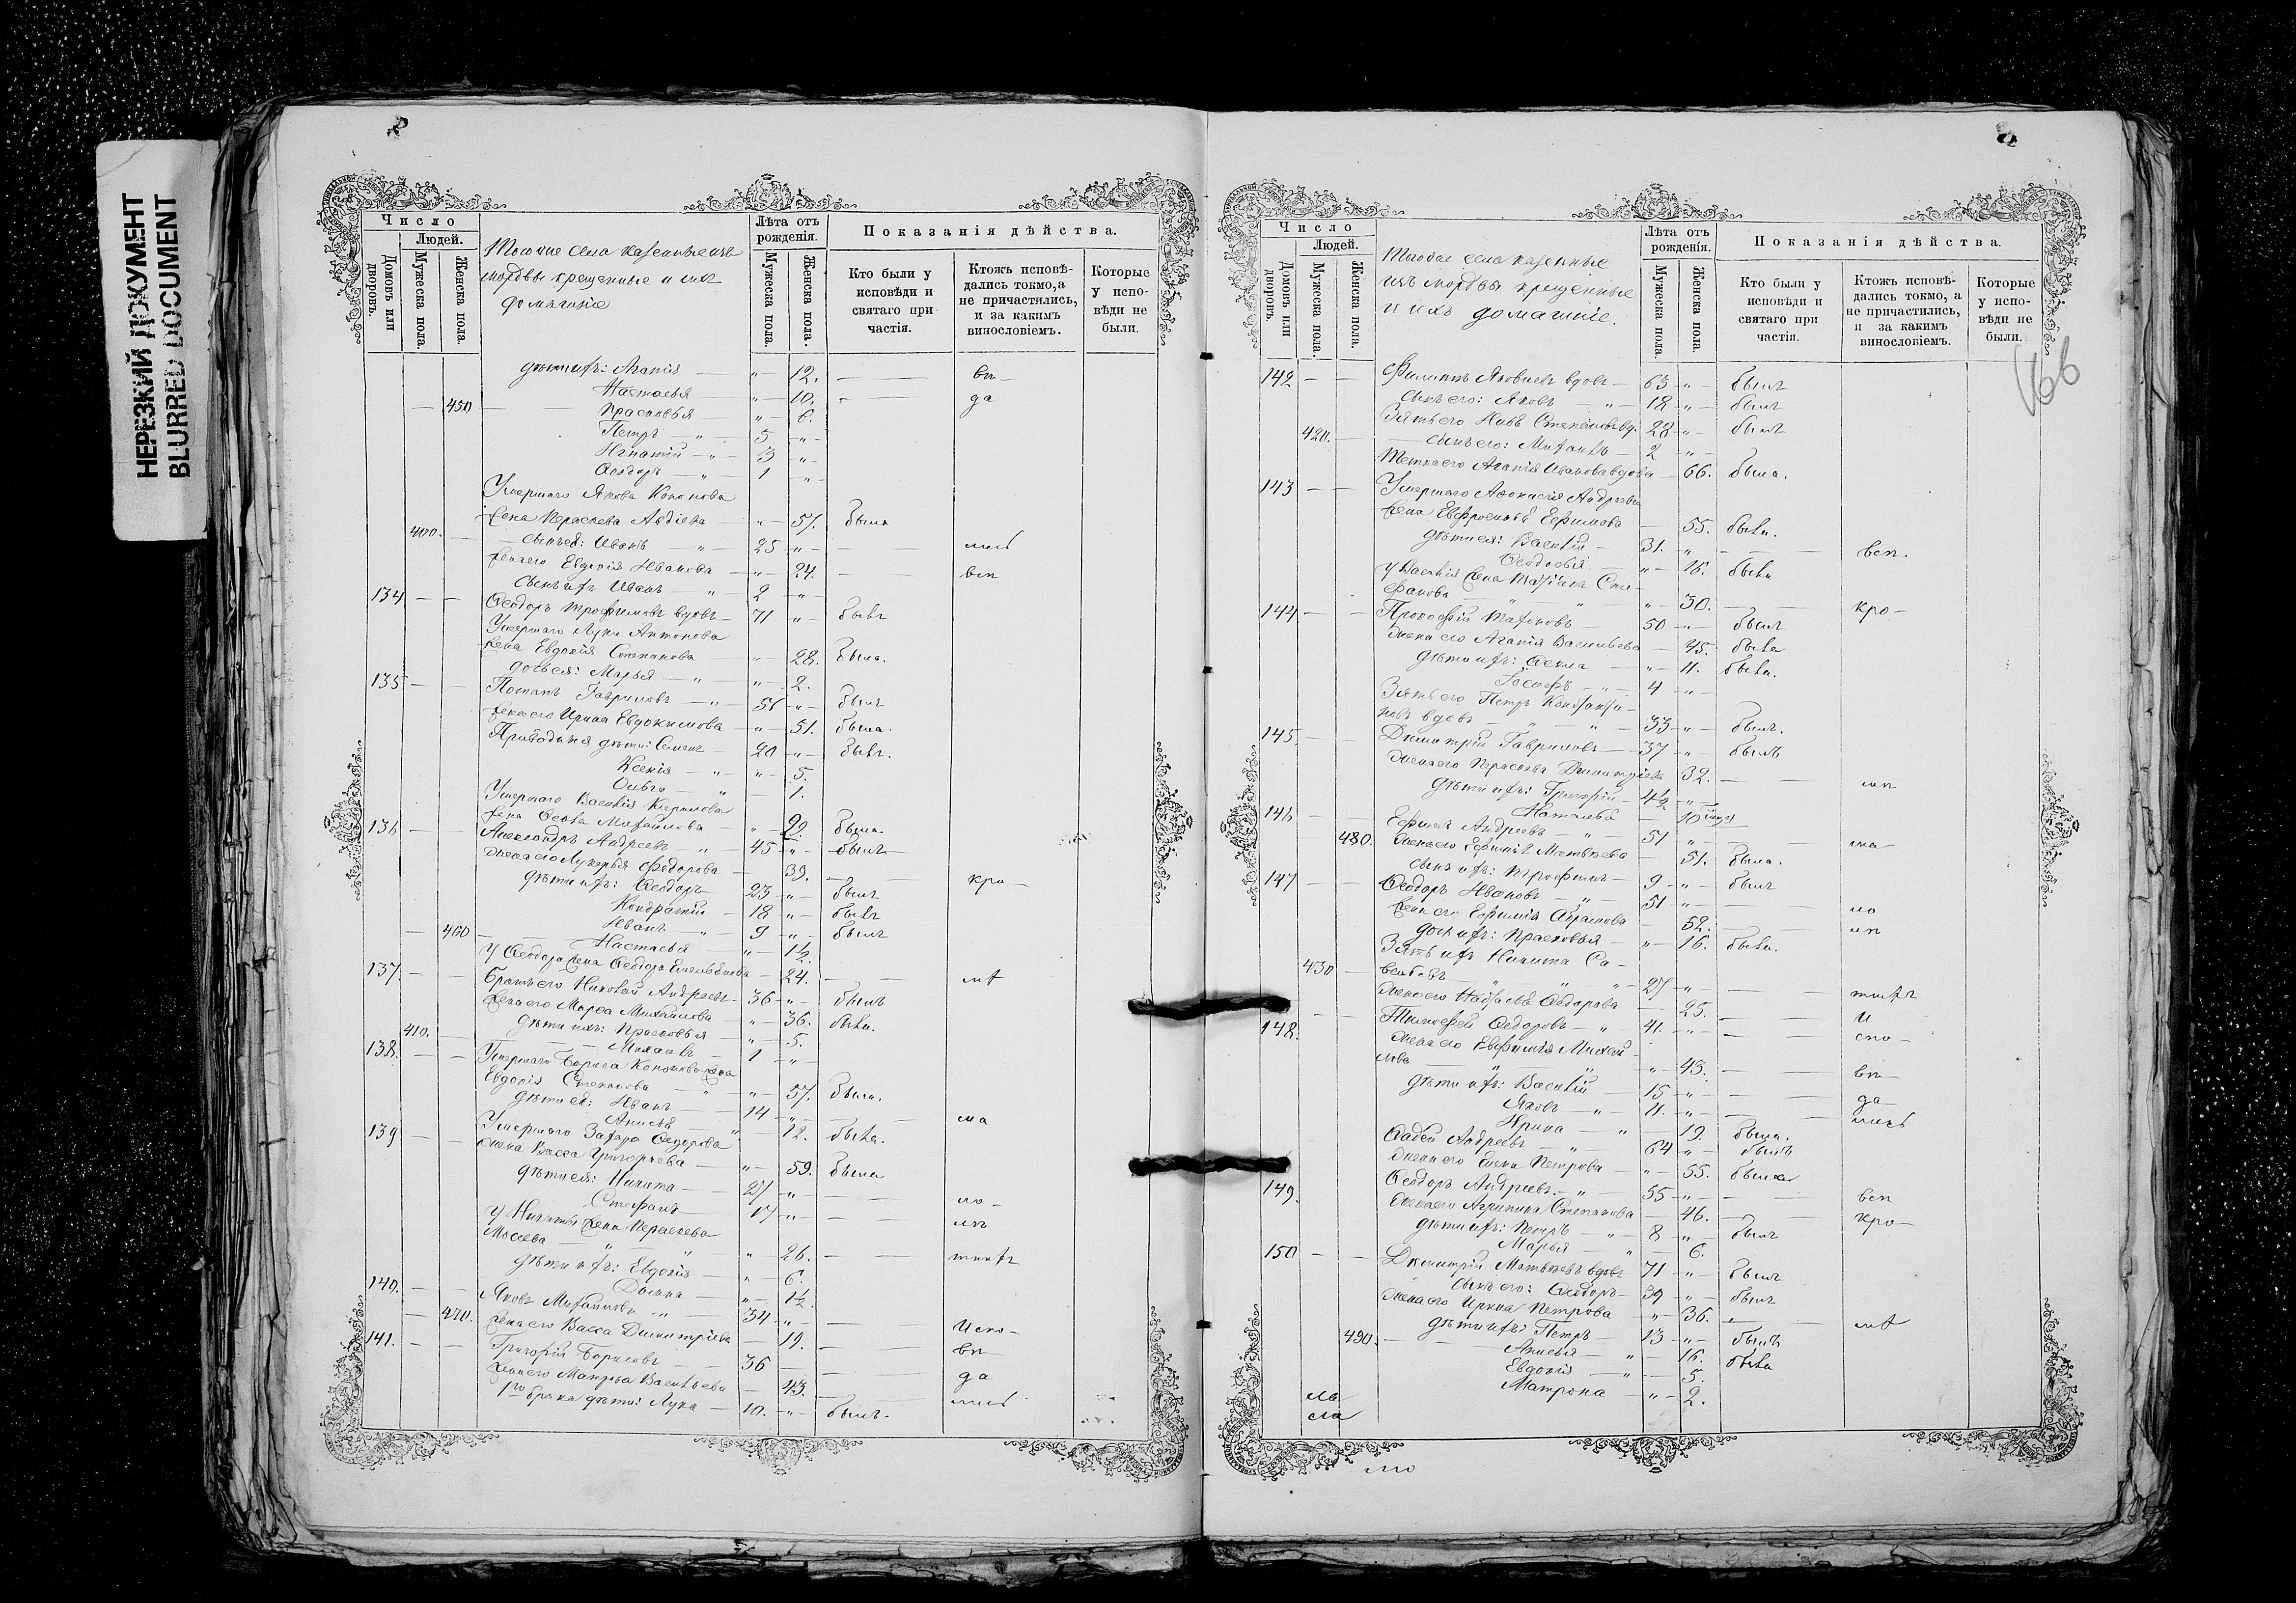 НЕРЕЗКИЙ ДОКУМЕНТ
BLURRED DOCUMENT
Число
Людей.
Домовъ или дворовъ.
Мужеска пола.
Женска пола.
Тогоже села казенные изъ
мордвы крещенные и ихъ
домашніе
Лѣта отъ рожденія.
Мужеска пола.
Женска пола.
Показанія дѣйства.
Кто были у исповѣди и святаго при частія.
Ктожъ исповѣдались токмо, а не причастились, и за какимъ винословіемъ.
Которые у исповѣди не были.
дѣти ихъ: Агапія — " — 12.
Настасья — " — 10. да
450 Прасковья " — 6.
Петръ — " — 5 — " —
Игнатій — " — 3 — " —
Ѳеодоръ — " 1 — " —
Умершаго Якова Кононова
жена Параскева Авдіева — " — 57. была
400. сынъ ея: Иванъ — " — 25 — " —
жена его Евдокія Иванова — " — 24.
сынъ ихъ Иванъ — " 2 — " —
134 — — Ѳеодоръ Трофимовъ вдовъ — 71 — " — былъ
Умершаго Луки Антонова
жена Евдокія Степанова " — 28. была.
дочь ея: Марья — " — " — 2.
135 — — Потапъ Гавриловъ — " — — " — былъ
жена его Ирина Евдокимова — " — 51. была.
Приводныя дѣти: Семенъ — 20 — " — былъ.
Ксенія — " — " — 5.
Ольга — " — 1.
Умершаго Василія Кирилова
жена Ѳекла Михайлова — " — 29. была.
136 — — Александръ Андреевъ — " — 45 — " — былъ
жена его Лукерья Ѳедорова — 39. кро —
дѣти ихъ: Ѳеодоръ — 23 — " — былъ
Кондратій — 18 — " — былъ
Иванъ — " — 9 — " — былъ
460 Настасья — " — 1½.
У Ѳеодора жена Ѳеодора Емельянова — 24.
137. — — Братъ его Николай Андреевъ — 36 — " — былъ
жена его Марѳа Михайлова — " — 36. была.
дѣти ихъ: Прасковья — " — 5.
410. Михаилъ — 1 — "
138. — — Умершаго Бориса Кононова жена
Евдокія Степанова " — " — 57. была.
дѣти ея: Иванъ — 14 — " —
Анисья " — 12. была.
139 — — Умершаго Захара Ѳедорова
жена Васса Григорьева — " — 59. была
дѣти ея: Никита — 27 — " —
Стефанъ — 17 — " —
У Никиты жена Параскева
Мосева — " — " " — 26. —
дѣти ихъ: Евдокія — " — 6.
Домна — " — 1½.
140. — — Яковъ Михайловъ " — 34 — " —
470. жена его Васса Димитріева — 19.
141. — — Григорій Борисовъ — 36
жена его Матрена Васильева — 43. да
1го брака дѣти: Лука — 10. — " — былъ.
Число
Людей.
Домовъ или дворовъ.
Мужеска пола.
Женска пола.
Тогоже села казенные
изъ мордвы крещенные
и ихъ домашніе.
Лѣта отъ рожденія.
Мужеска пола.
Женска пола.
Показанія дѣйства.
Кто были у исповѣди и святаго при частія.
Ктожъ исповѣдались токмо, а не причастились, и за какимъ винословіемъ.
Которые у исповѣди не были.
166
142 — — Филиппъ Яковлевъ вдовъ — 63 — " — былъ
сынъ его: Яковъ — " — 18 — " — былъ
Зять его Левъ Степановъ вд. 28 — " — былъ
420. — сынъ его: Михаилъ — 2 — " —
Тетка его Агапія Иванова вдова — 66. была.
143 — — Умершаго Аѳанасія Андреева
жена Евфросинья Ефимова — 55. была.
дѣти ея: Василій — 31. — " —
Ѳеодосья — " — 18. была
У Василія жена Татіана Сте-
фанова — " " — 30. — кро —
144 — — Прокофій 50 — " — былъ
жена его Агапія Васильева — 45. была
дѣти ихъ: Ѳекла — " — 11. была.
Іосифъ — " — 4 — " —
Зять его Петръ Константи-
новъ вдовъ — " — " 33 — " — былъ.
145. — — Димитрій Гавриловъ — 37 — " — былъ
жена его Параскева Димитріева 32. —
дѣти ихъ: Григорій — 4½ — " —
Наталья — 10
146 — — Ефимъ Андреевъ — " — 51 " —
480. жена его Ефимія Матвѣева — 51. была.
сынъ ихъ: Трофимъ — 9 — " — былъ
147 — — Ѳеодоръ Ивановъ — " — 51 — " —
жена его Ефимія Абрамова — 52.
дочь ихъ: Прасковья — " — 16. была.
Зять ихъ Никита Са-
430 — вельевъ " " — " — 27 — " —
жена его Настасья Ѳедорова — 25.
148. — — Тимофей Ѳедоровъ — " 41. — " —
жена его Евфимія Михай-
лова " — " " — 43.
дѣти ихъ: Василій — 15 — " — да —
Яковъ — " — 11. — " —
Ирина — " — 19. была.
Ѳадей Андреевъ — " — 64 — " — былъ
жена его Елена Петрова — " — 55. была
149. Ѳеодоръ Андреевъ — " — 55 — " —
жена его Агрипина Степанова — 46. — кро —
дѣти ихъ: Петръ — " — 8 — " — былъ
Марья — " — 6.
150 — — Димитрій Матвѣевъ вдовъ 71 — " — былъ
сынъ его: Ѳеодоръ — 39 — " — былъ
жена его Ирина Петрова " — 36.
дѣти ихъ: Петръ — 13 — " — былъ
490. Анисья — " — 16. была
Евдокія — " — 5.
Матрона — " — 2.